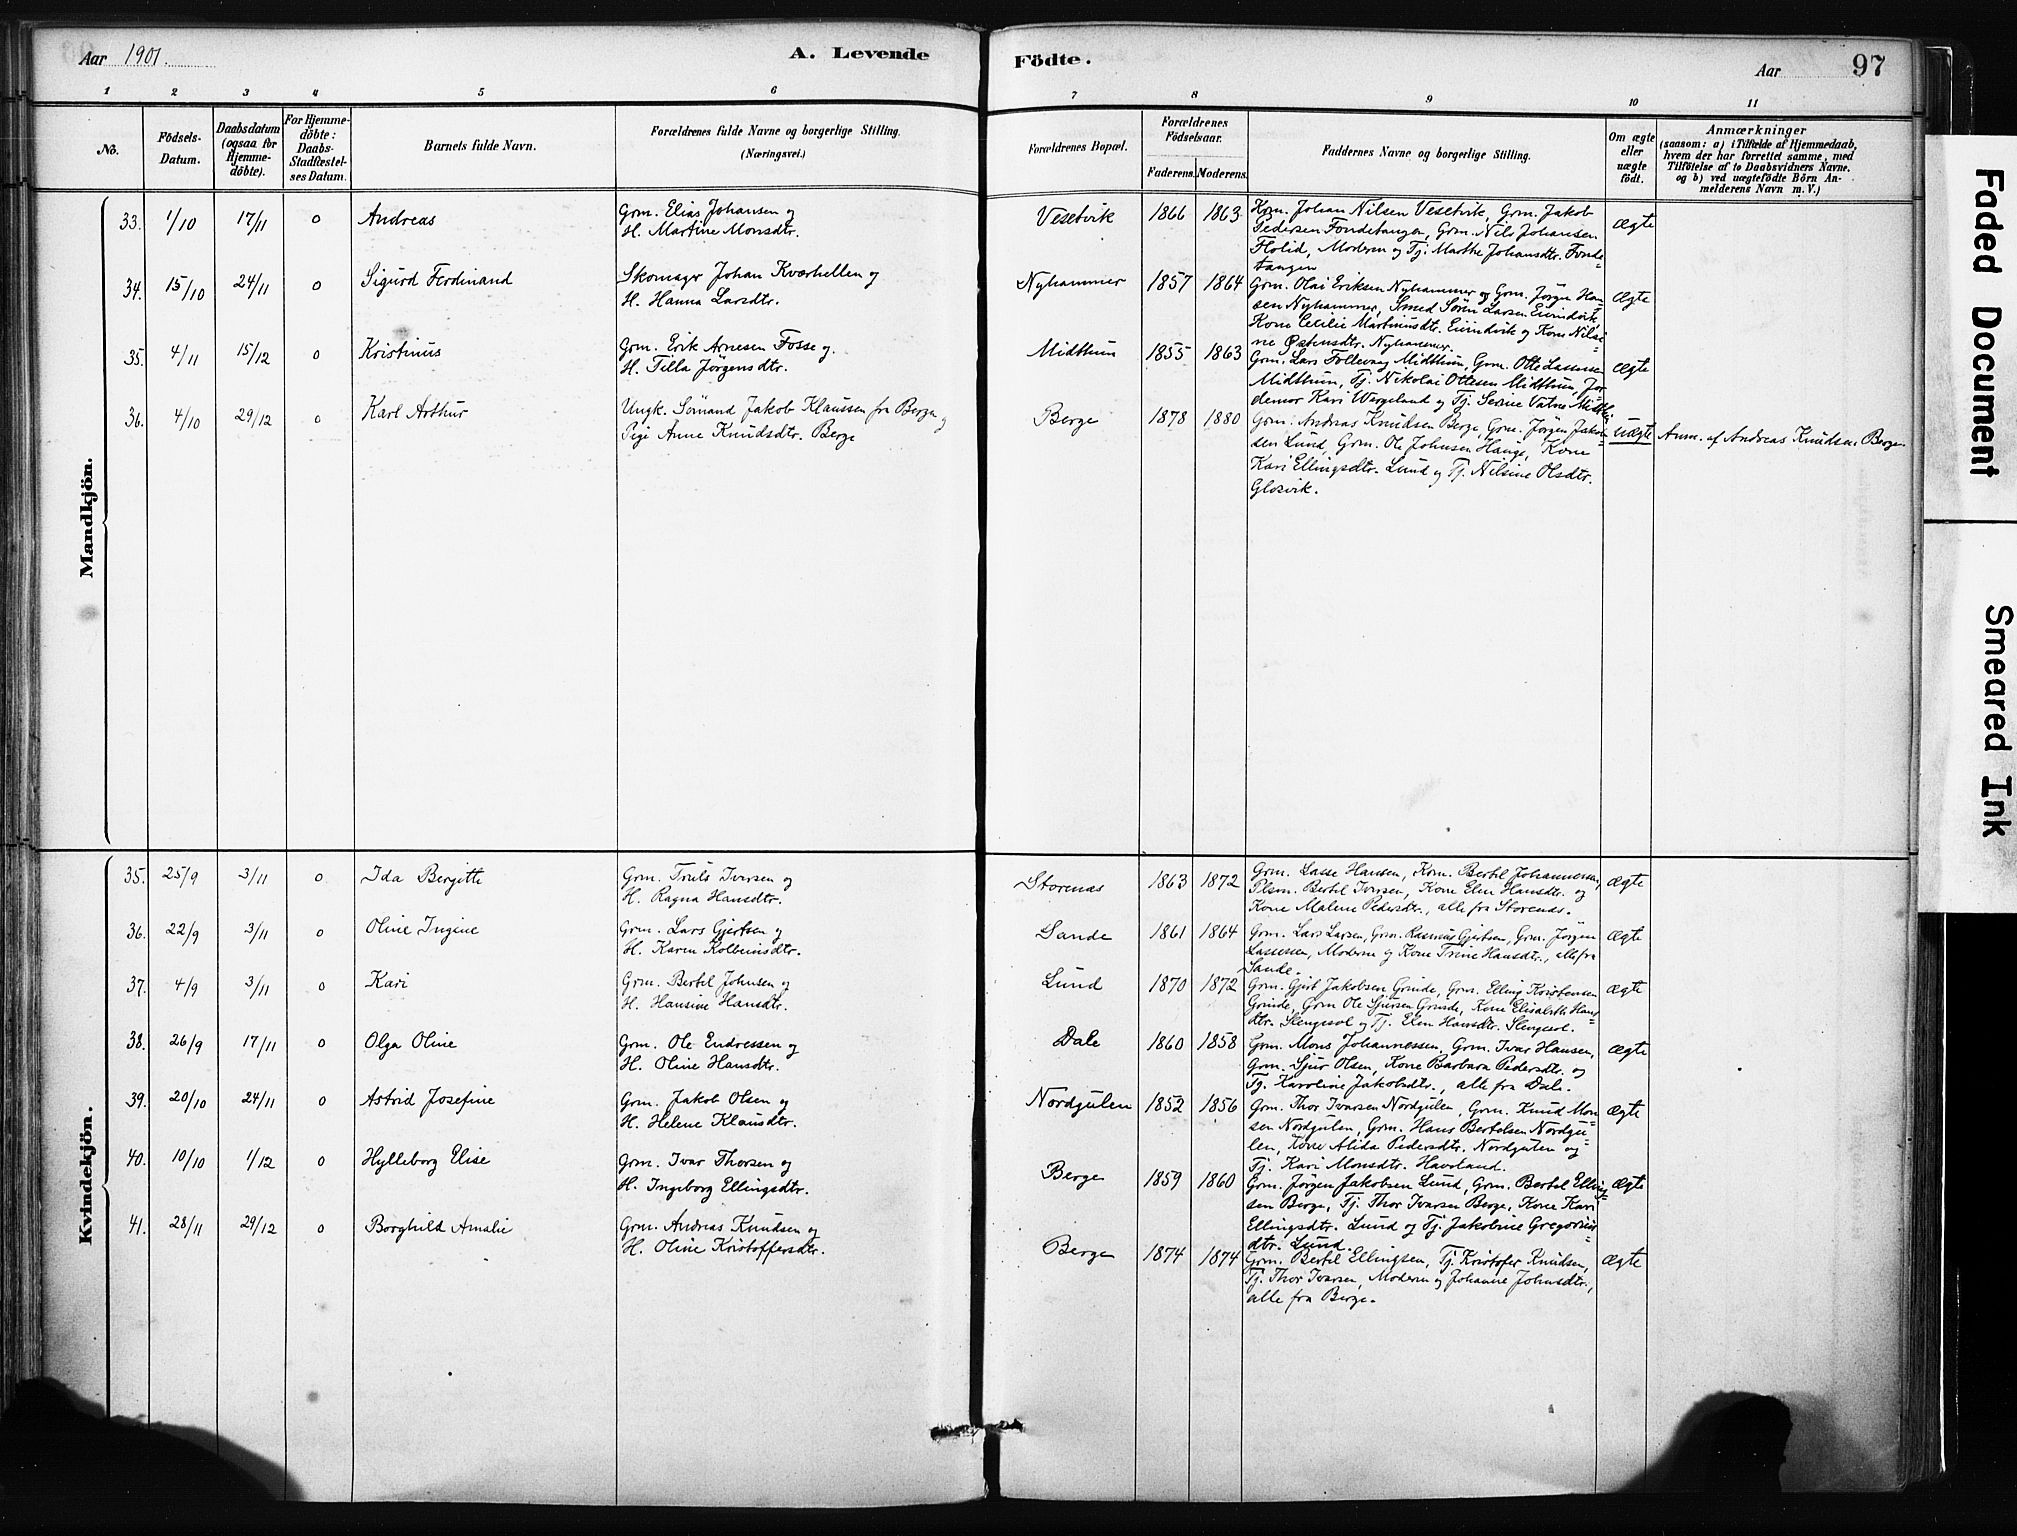 Aar 1901.
A. Levende
Födte.
Aar
97
1 2 3 4 5 6 7 8 9 10 11
No.
Födsels-
Datum.
Daabsdatum
(ogsaa for
Hjemme-
döbte).
For Hjemme-
döbte:
Daabs-
Stadfæstel-
ses Datum.
Barnets fulde Navn.
Forældrenes fulde Navne og borgerlige Stilling.
(Næringsvei.)
Forældrenes Bopæl.
Forældrenes
Födselsaar.
Faderens. Moderens.
Faddernes Navne og borgerlige Stilling.
Om ægte
eller
uægte
födt.
Anmærkninger
(saasom: a) i Tilfælde af Hjemmedaab,
hvem der har forrettet samme, med
Tilföielse af to Daabsvidners Navne,
og b) ved uægtefödte Börn An-
melderens Navn m. V.)
Mandkjön.
33. 1/10 17/11 0 Andreas
Grm. Elias Johansen og
H. Martine Monsdtr.
Vesetvik 1866 1863
Krm. Johan Nilsen Vesetvik, Grm. Jakob
Pedersen Fondetangen, Grm. Nils Johansen
Flolid, Moderen og Tj. Marthe Johansdtr. Fonde-
tangen
Ægte
34. 15/10 24/11 0 Sigurd Ferdinand
Skomager Johan Kværhellen og
H. Hanna Larsdtr.
Nyhammer 1857 1864
Grm. Olai Eriksen Nyhammer og Grm. Jörgen Han-
sen Nyhammer, Smed Sören Larsen Eivindvik
Kone Cecilie Martinusdtr. Eivindvik og Kone Nilsi-
ne Östensdtr. Nyhammer.
Ægte
35. 4/11 15/12 0 Kristinus
Grm. Erik Arnesen Fosse og
H. Tilla Jörgensdtr.
Midthun 1855 1863
Grm. Lars Follevaag Midthun, Grm. Otte Lassesen
Midthun, Tj. Nikolai Ottesen Midthun, Jor-
demor Kari Wergeland og Tj. Serine Vatne Midth.
Ægte
36. 4/10 29/12 0 Karl Arthur
Ungk. Sömand Jakob Klaussen fra Bergen og
Pige Anne Knudsdtr. Berge
Berge 1878 1880
Grm. Andreas Knudsen Berge, Grm. Jörgen Jakob-
sen Lund, Grm. Ole Johnsen Hauge, Kone
Kari Ellingsdtr. Lund og Tj. Nilsine Olsdtr.
Glosvik.
Uægte
Anm. af Andreas Knudsen Berge
Kvindekjön.
35. 25/9 3/11 0 Ida Bergitte
Grm. Truls Iversen og
H. Ragna Hansdtr.
Storenas 1863 1872
Grm. Lasse Hansen, Krm. Bertil Johannessen,
Plsm. Bertil Iversen, Kone Elen Hansdtr. og
Kone Malene Pedersdtr., alle fra Storenas.
Ægte
36. 22/9 3/11 0 Oline Ingine
Grm. Lars Gjertsen og
H. Karen Kolbeinsdtr.
Sande 1861 1864
Grm. Lars Larsen, Grm. Rasmus Gjertsen, Grm. Jörgen
Lassesen, Moderen og Kone Trine Hansdtr., alle fra
Sande.
Ægte
37. 4/9 3/11 0 Kari
Grm. Bertel Johnsen og
H. Hansine Hansdtr.
Lund 1870 1872
Grm. Gjert Jakobsen Grinde, Grm. Elling Kristensen
Grinde, Grm Ole Sjursen Grinde, Kone Elisabeth Hans-
dtr. Slengesol og Tj. Elen Hansdtr. Slengesol.
Ægte
38. 26/9 17/11 0 Olga Oline
Grm. Ole Endressen og
H. Oline Hansdtr.
Dale 1860 1858
Grm. Mons Johannessen, Grm. Ivar Hansen,
Grm. Sjur Olsen, Kone Barbara Pedersdtr. og
Tj. Karoline Jakobsdtr., alle fra Dale.
Ægte
39. 20/10 24/11 0 Astrid Josefine
Grm. Jakob Olsen og
H. Helene Klausdtr.
Nordgulen 1852 1856
Grm. Thor Ivarsen Nordgulen, Grm. Knud Mon-
sen Nordgulen, Grm. Hans Bertelsen Nordgu-
len, Kone Alida Pedersdtr. Nordgulen og
Tj. Kari Monsdtr. Haveland.
Ægte
40. 10/10 1/12 0 Hylleborg Elise
Grm. Ivar Thorsen og
H. Ingeborg Ellingsdtr.
Berge 1859 1860
Grm. Jörgen Jakobsen Lund, Grm. Bertel Elling-
sen Berge, Tj. Thor Ivarsen Berge, Kone Kari
Ellingsdtr. Lund og Tj. Jakobine Gregorius
dtr. Lund.
Ægte
41. 28/11 29/12 0 Borghild Amalie
Grm. Andreas Knudsen og
H. Oline Kristoffersdtr.
Berge 1874 1874
Grm. Bertil Ellingsen, Tj. Kristofer Knudsen,
Tj. Thor Ivarsen, Moderen og Johanne Johnsdtr.,
alle fra Berge.
Ægte
Faded Document
Smeared Ink